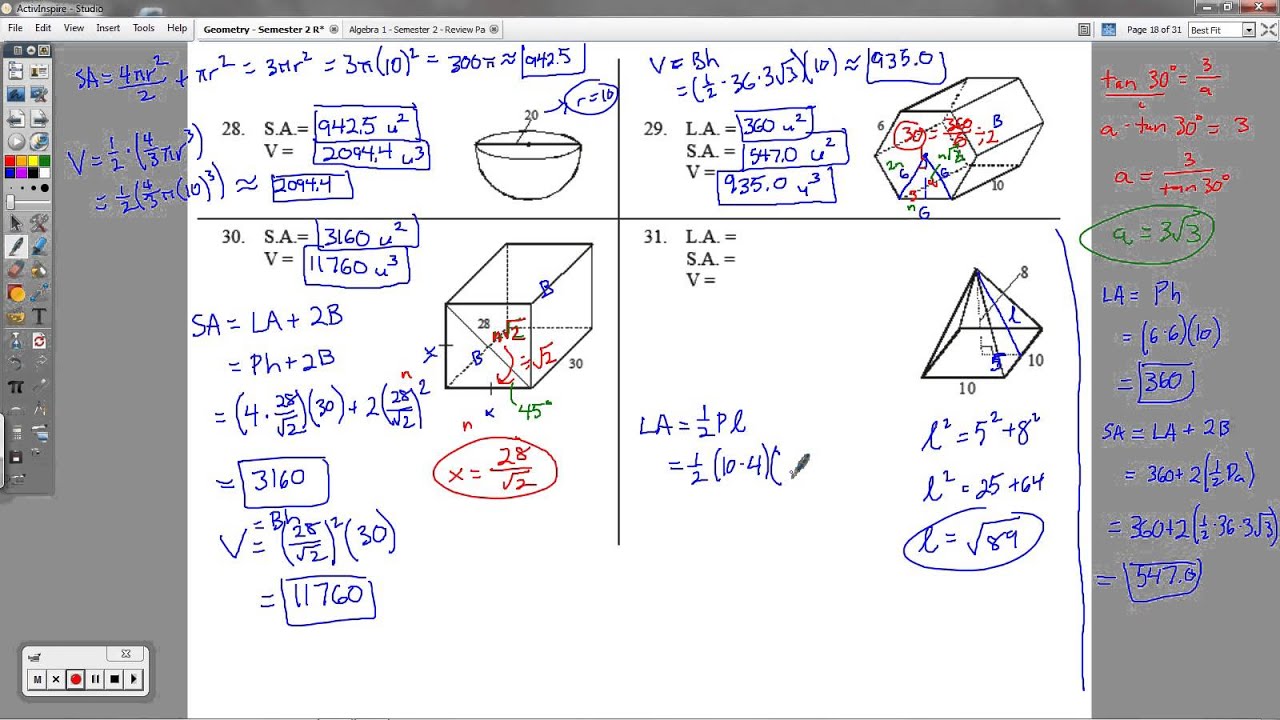 ActivInspire - Studio
File Edit View Insert Tools Help
Geometry - Semester 2 R*
Algebra 1 - Semester 2 - Review Pa
Page 18 of 31
Best Fit
SA = 4πr²/2 + πr² = 3πr² = 3π(10)² = 300π ≈ 942.5
V = 1/2 · (4/3 πr³)
= 1/2 (4/3 π(10)³) ≈ 2094.4
28. S.A. = 942.5 u²
V = 2094.4 u³
20
r=10
V = Bh
= (1/2 · 36 · 3√3)(10) ≈ 935.0
29. L.A. = 360 u²
S.A. = 547.0 u²
V = 935.0 u³
6
30 = 360
B
2n
n√3
6
6
3
n
6
10
30. S.A. = 3160 u²
V = 11760 u³
SA = LA + 2B
= Ph + 2B
= (4 · 28/√2)(30) + 2(28/√2)²
= 3160
V = Bh
= (28/√2)²(30)
= 11760
B
28
n√2
= √2
x
B
n
30
n
x
45°
x = 28/√2
31. L.A. =
S.A. =
V =
8
l
5
10
10
LA = 1/2 Pl
= 1/2 (10·4)(
l² = 5² + 8²
l² = 25 + 64
l = √89
tan 30° = 3/a
a · tan 30° = 3
a = 3/tan 30°
a = 3√3
LA = Ph
= (6·6)(10)
= 360
SA = LA + 2B
= 360 + 2(1/2 Pa)
= 360 + 2(1/2 · 36 · 3√3)
= 547.0
M